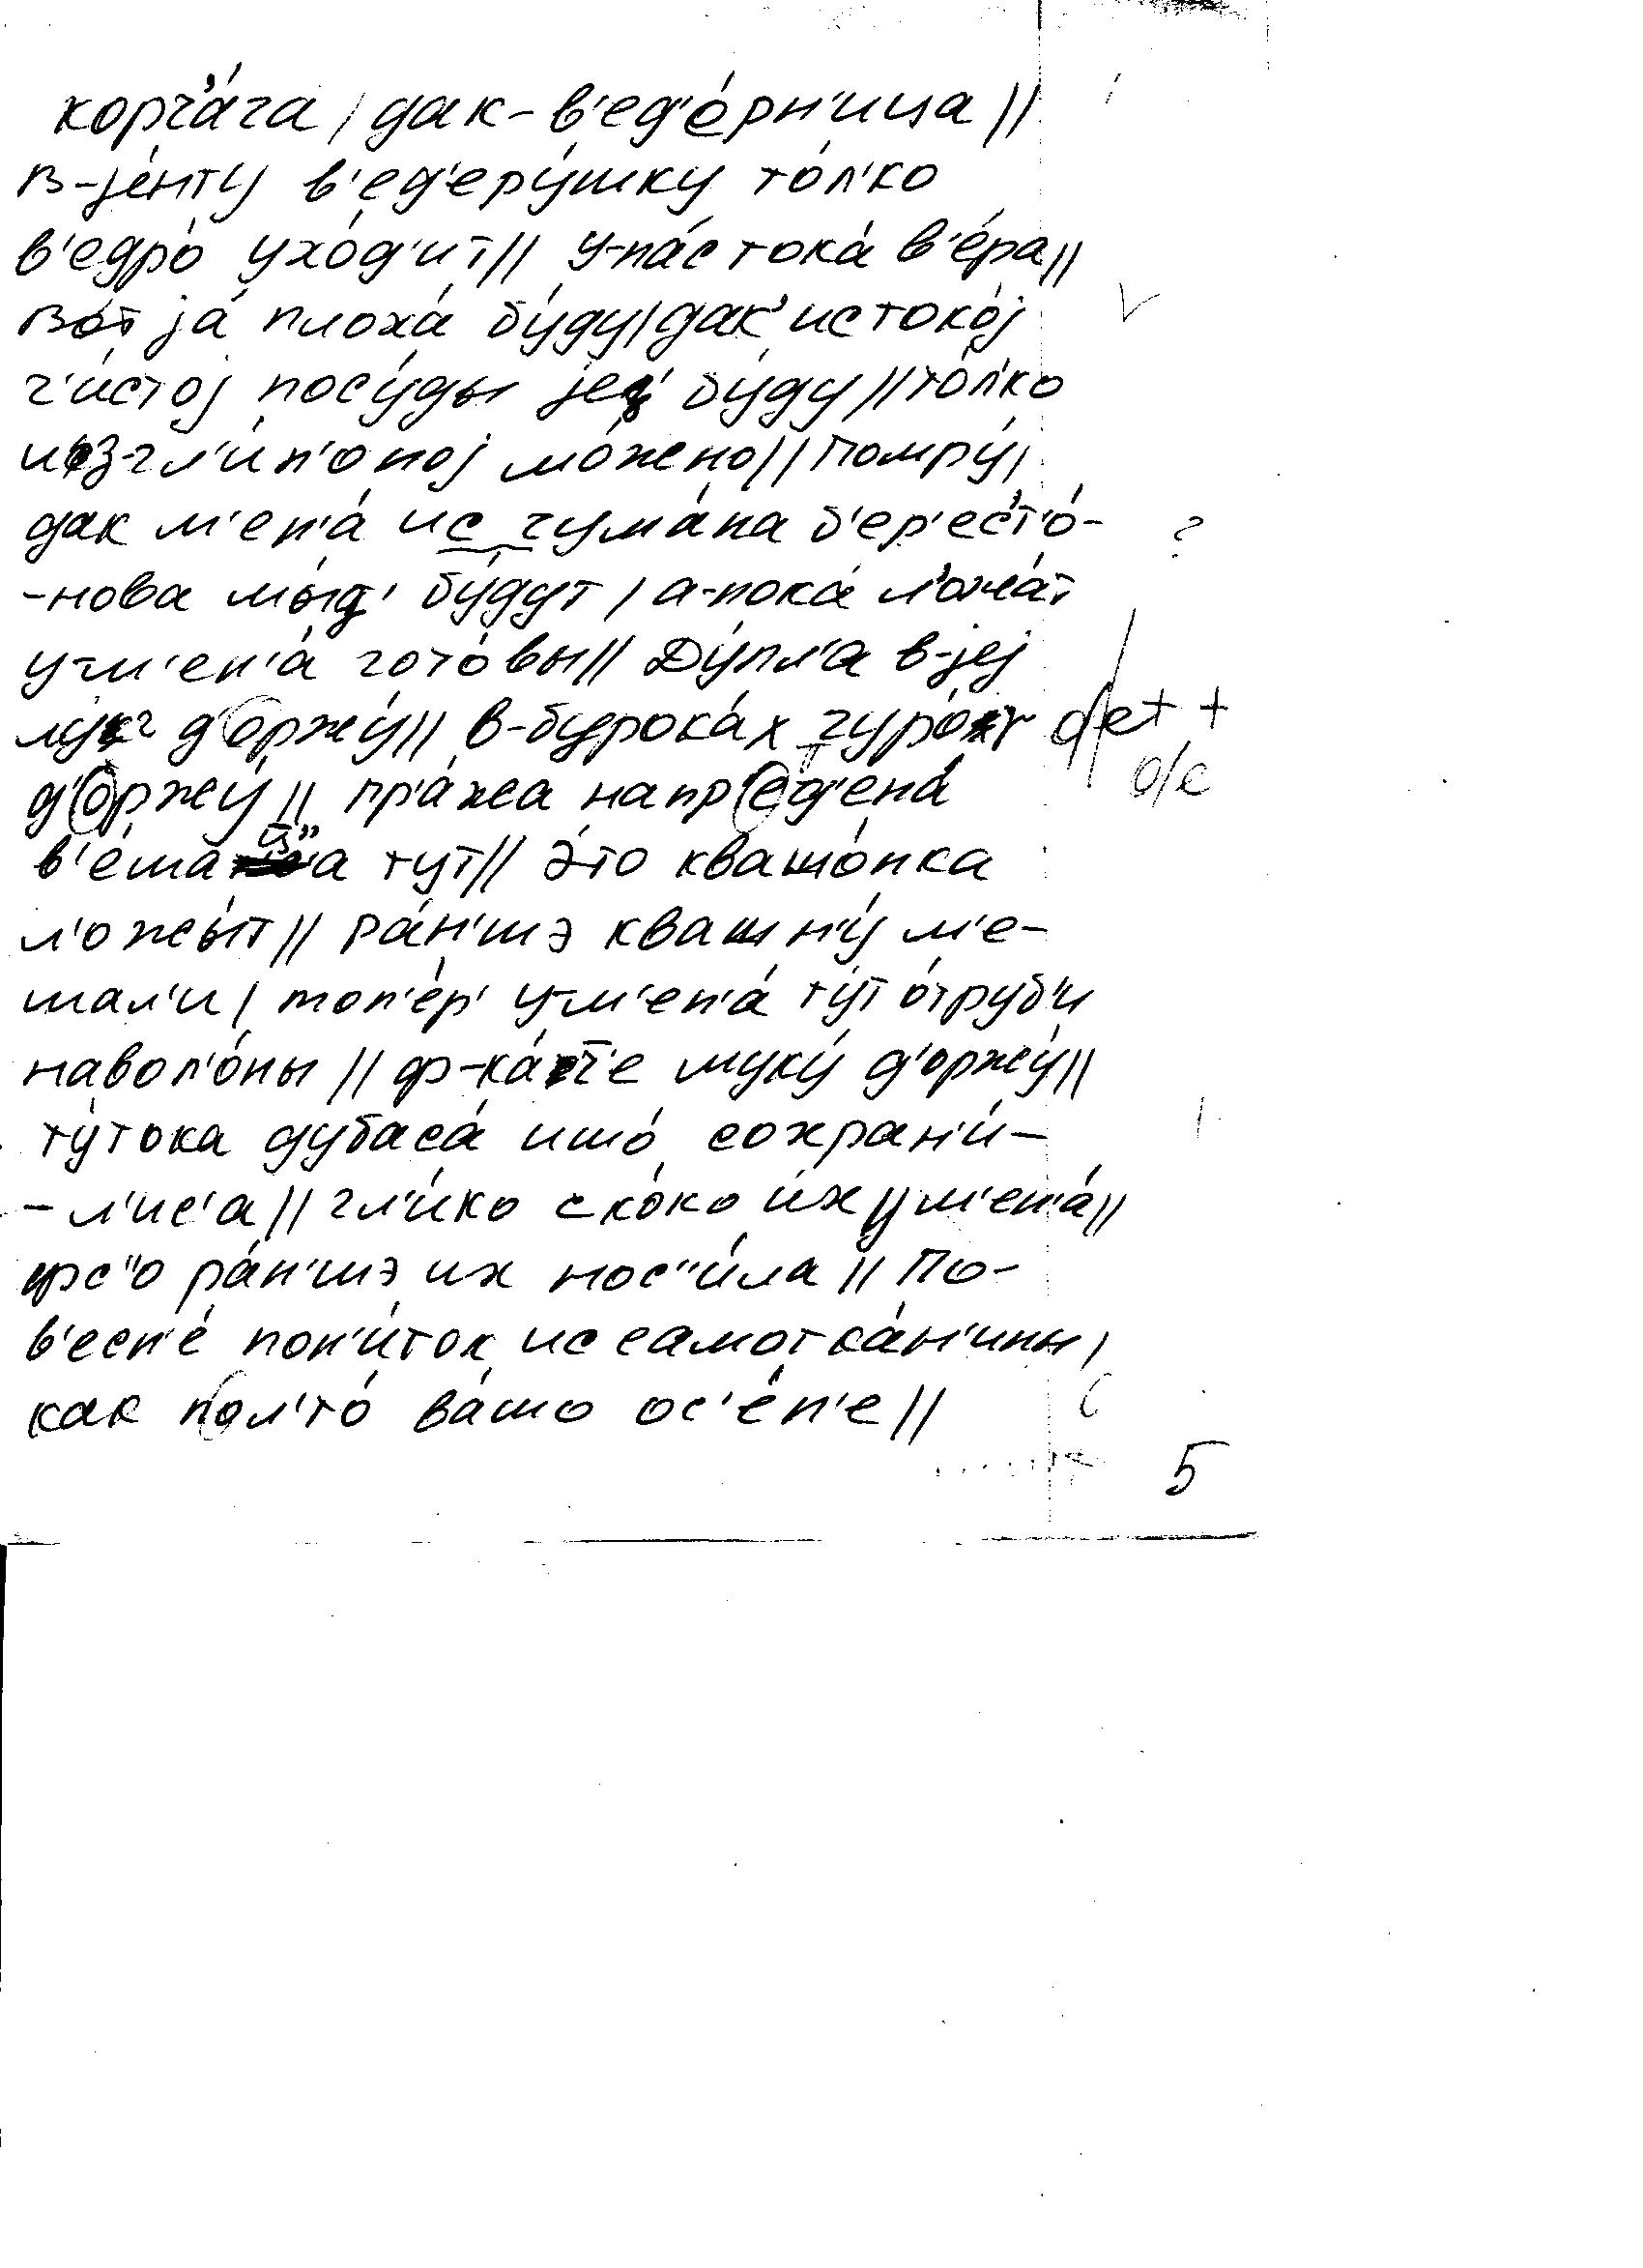 корч'а́га / дак-в'ед'о́рн'ица //
в-jе́нту в'ед'еру́шку то́л'ко
в'едро́ ухо́д'ит // у-на́с тока́ в'е́ра //
во́т jа́ плоха́ бу́ду / дак ис токо́j
ч'и́стоj посу́ды jец' бу́ду // то́л'ко
из-гл'и́н'оноj мо́жено // помру́ /
дак м'ен'а́ ис чума́на б'ер'ест'о́-
-нова мы́ц' бу́дут / а-пока́ л'ожа́т
у-м'ен'а́ гото́вы // ду́пл'а в-jеj
му́ч д'оржу́ // в-бурока́х
д'оржу́ // пр'а́жа напр'ед'ена́
в'е́шац"а тут // э́то квашо́нка
л'ожы́т // ра́н'шэ квашн'у́ м'е-
шал'и / топ'е́р' у-м'ен'а́ ту́т о́труб'и
навол'о́ны // ф-ка́т'е муку́ д'оржу́ //
ту́тока дубаса́ ишо́ сохран'и́-
-л'ис'а // гл'и́ко ско́ко и́х у м'ен'а́ //
фс"о ра́н'шэ их нос"и́ла // По-
в'есн'е́ пон'и́ток ис самотка́н'ины /
как пол'то́ ва́шо ос'е́н'е //
5